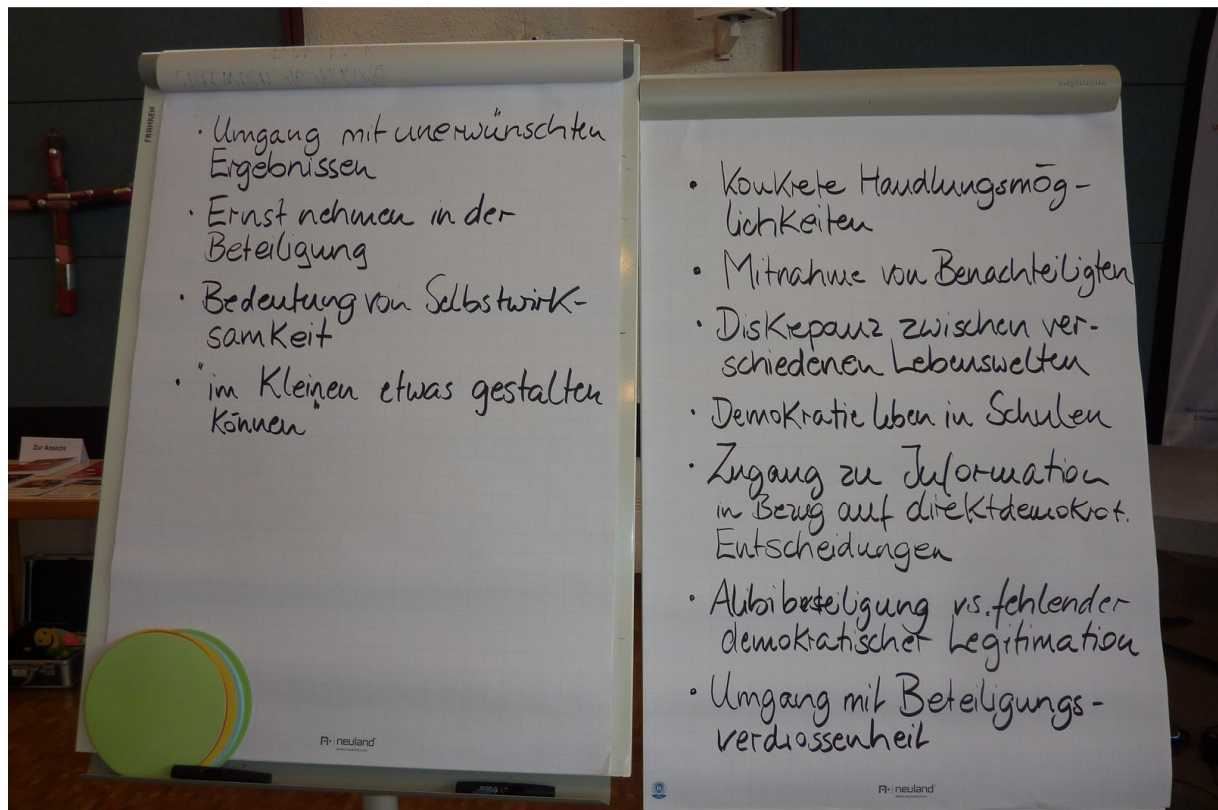 FRANKEN
· Umgang mit unerwünschten
Ergebnissen
· Ernst nehmen in der
Beteiligung
· Bedeutung von Selbstwirk-
samkeit
· "im Kleinen etwas gestalten
können"
neuland
Zur Ansicht
magnetoplan
· Konkrete Handlungsmög-
lichkeiten
· Mitnahme von Benachteiligten
· Diskrepanz zwischen ver-
schiedenen Lebenswelten
· Demokratie leben in Schulen
· Zugang zu Information
in Bezug auf direktdemokrat.
Entscheidungen
· Alibibeteiligung vs. fehlender
demokratischer Legitimation
· Umgang mit Beteiligungs-
verdrossenheit
neuland